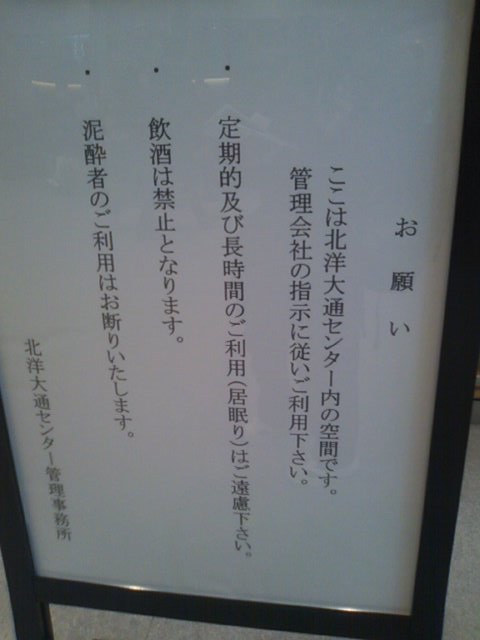 お願い
ここは北洋大通センター内の空間です。
管理会社の指示に従いご利用下さい。
・定期的及び長時間のご利用(居眠り)はご遠慮下さい。
・飲酒は禁止となります。
・泥酔者のご利用はお断りいたします。
北洋大通センター管理事務所